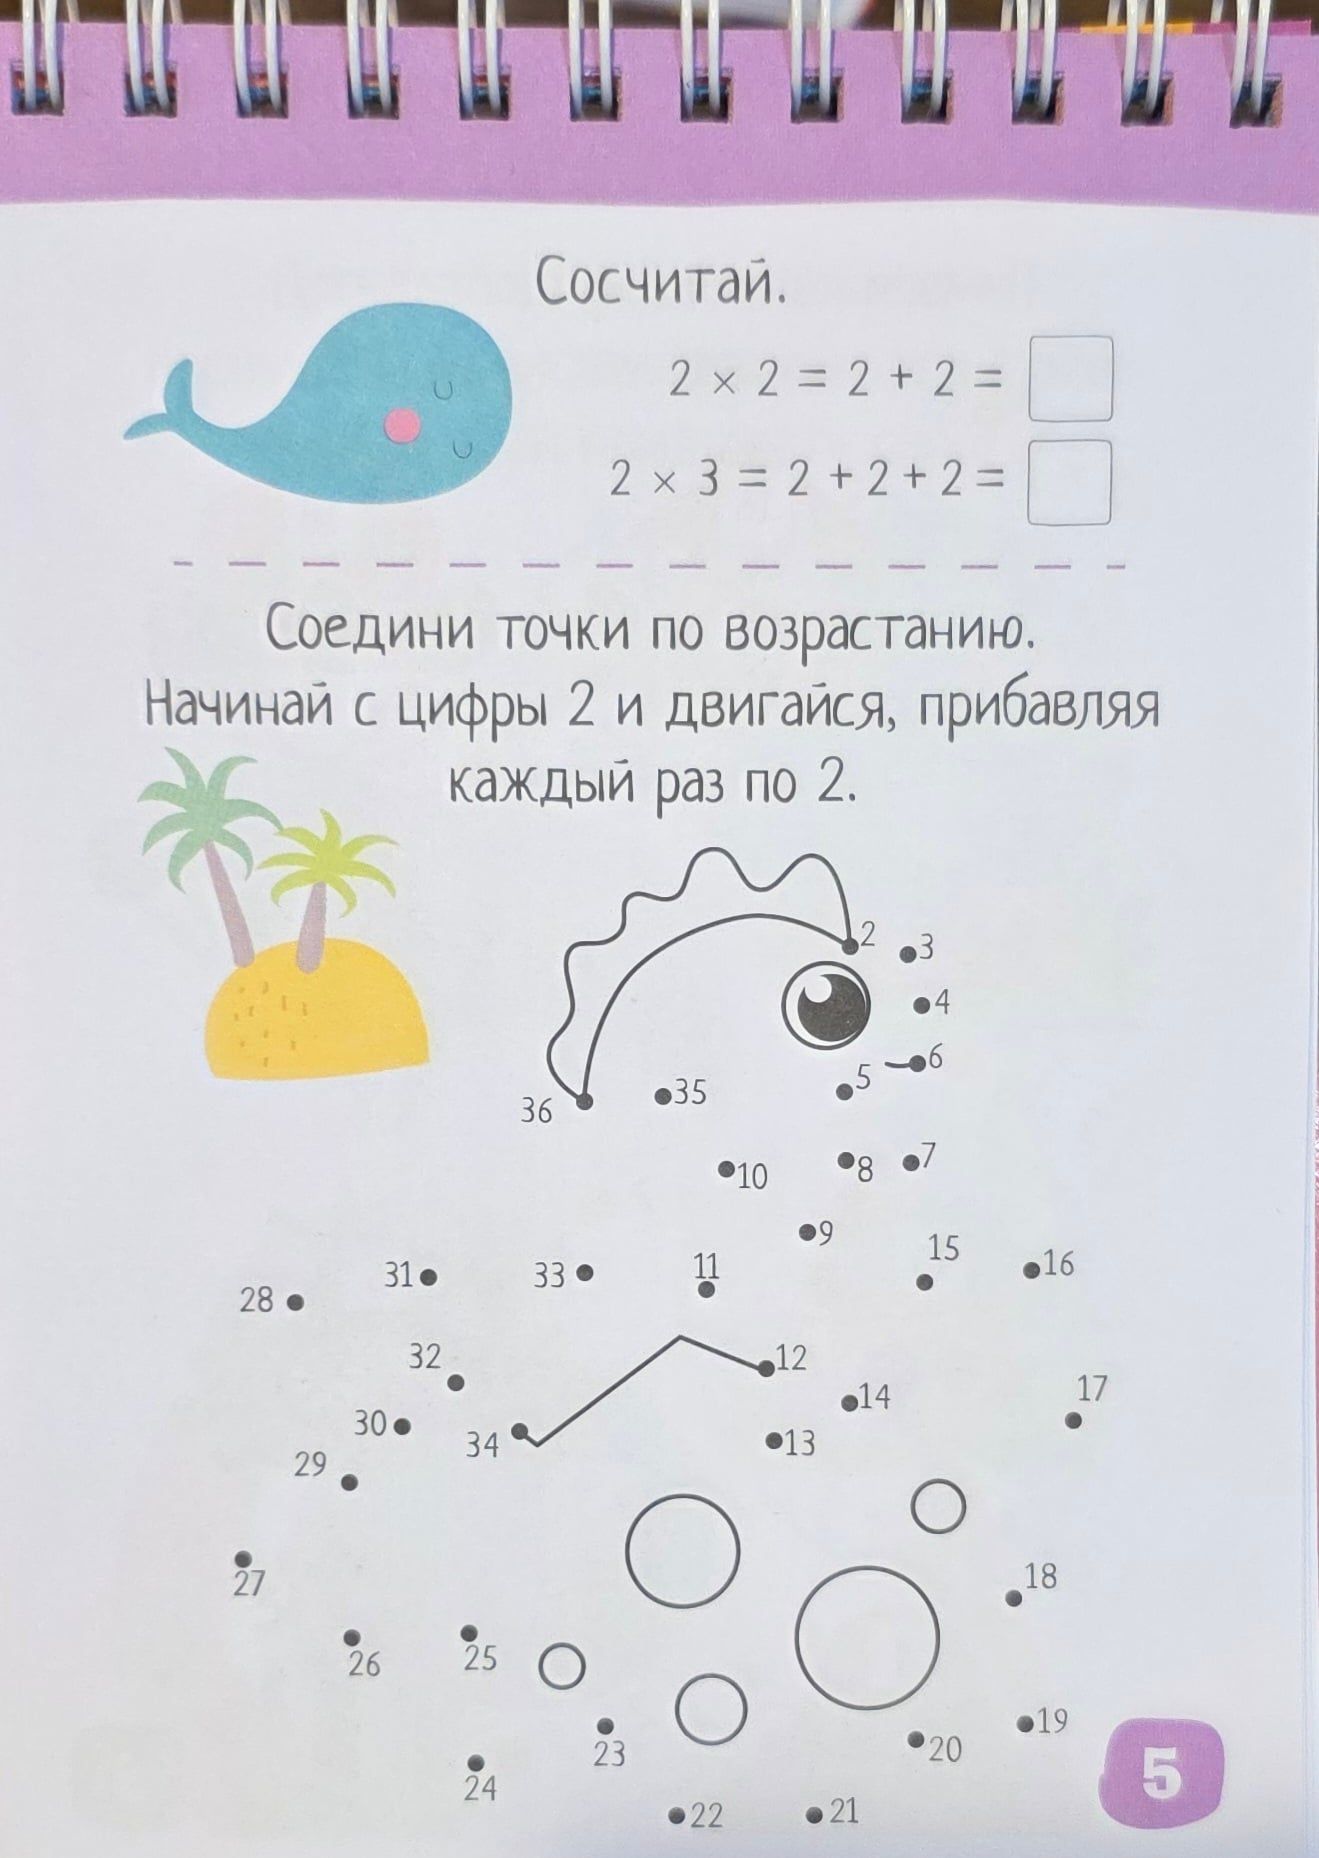 Сосчитай.
2 × 2 = 2 + 2 =
2 × 3 = 2 + 2 + 2 =
Соедини точки по возрастанию.
Начинай с цифры 2 и двигайся, прибавляя
каждый раз по 2.
2
3
4
6
5
35
36
8
7
10
9
15
16
11
33
31
28
32
12
17
14
30
34
13
29
18
27
25
26
19
20
23
5
24
22
21